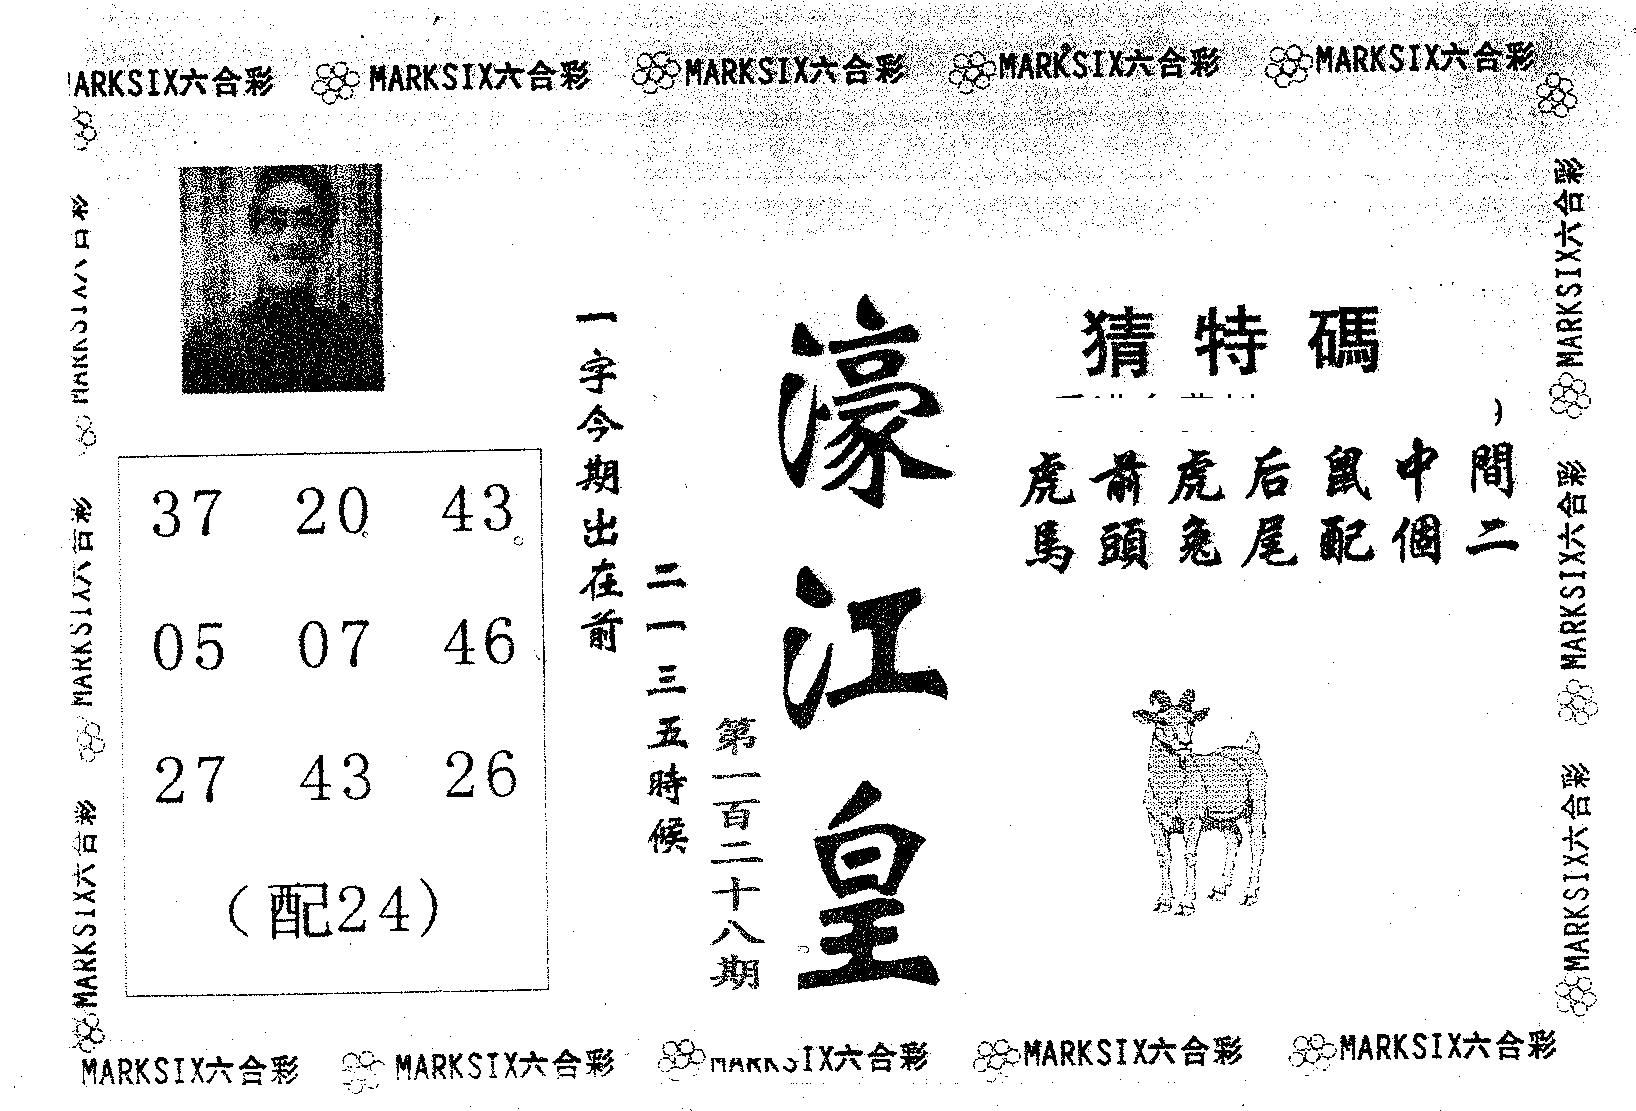 MARKSIX六合彩 MARKSIX六合彩 MARKSIX六合彩 MARKSIX六合彩 MARKSIX六合彩
猜特碼
虎前虎后鼠中間
馬頭兔尾配個二
濠江皇
第一百二十八期
一字今期出在前
二一三五時候
37 20 43
05 07 46
27 43 26
(配24)
MARKSIX六合彩
MARKSIX六合彩
MARKSIX六合彩
MARKSIX六合彩
MARKSIX六合彩
MARKSIX六合彩
MARKSIX六合彩 MARKSIX六合彩 MARKSIX六合彩 MARKSIX六合彩 MARKSIX六合彩